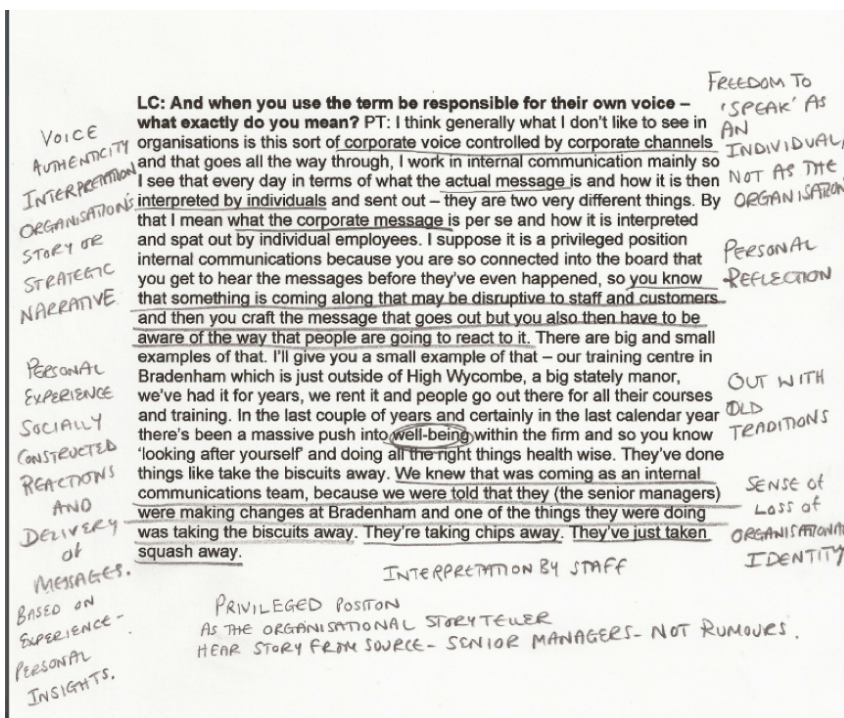 VOICE
AUTHENTICITY
INTERPRETATION
ORGANISATION'S
STORY OR
STRATEGIC
NARRATIVE
PERSONAL
EXPERIENCE
SOCIALLY
CONSTRUCTED
REACTIONS
AND
DELIVERY
of
MESSAGES.
BASED ON
EXPERIENCE -
PERSONAL
INSIGHTS.
LC: And when you use the term be responsible for their own voice –
what exactly do you mean? PT: I think generally what I don't like to see in
organisations is this sort of corporate voice controlled by corporate channels
and that goes all the way through, I work in internal communication mainly so
I see that every day in terms of what the actual message is and how it is then
interpreted by individuals and sent out – they are two very different things. By
that I mean what the corporate message is per se and how it is interpreted
and spat out by individual employees. I suppose it is a privileged position
internal communications because you are so connected into the board that
you get to hear the messages before they've even happened, so you know
that something is coming along that may be disruptive to staff and customers
and then you craft the message that goes out but you also then have to be
aware of the way that people are going to react to it. There are big and small
examples of that. I'll give you a small example of that – our training centre in
Bradenham which is just outside of High Wycombe, a big stately manor,
we've had it for years, we rent it and people go out there for all their courses
and training. In the last couple of years and certainly in the last calendar year
there's been a massive push into well-being within the firm and so you know
'looking after yourself' and doing all the right things health wise. They've done
things like take the biscuits away. We knew that was coming as an internal
communications team, because we were told that they (the senior managers)
were making changes at Bradenham and one of the things they were doing
was taking the biscuits away. They're taking chips away. They've just taken
squash away.
FREEDOM TO
'SPEAK' AS
AN
INDIVIDUAL,
NOT AS THE
ORGANISATION
PERSONAL
REFLECTION
OUT WITH
OLD
TRADITIONS
SENSE of
LOSS of
ORGANISATIONAL
IDENTITY
INTERPRETATION BY STAFF
PRIVILEGED POSITON
AS THE ORGANISATIONAL STORYTELLER
HEAR STORY FROM SOURCE - SENIOR MANAGERS - NOT RUMOURS.